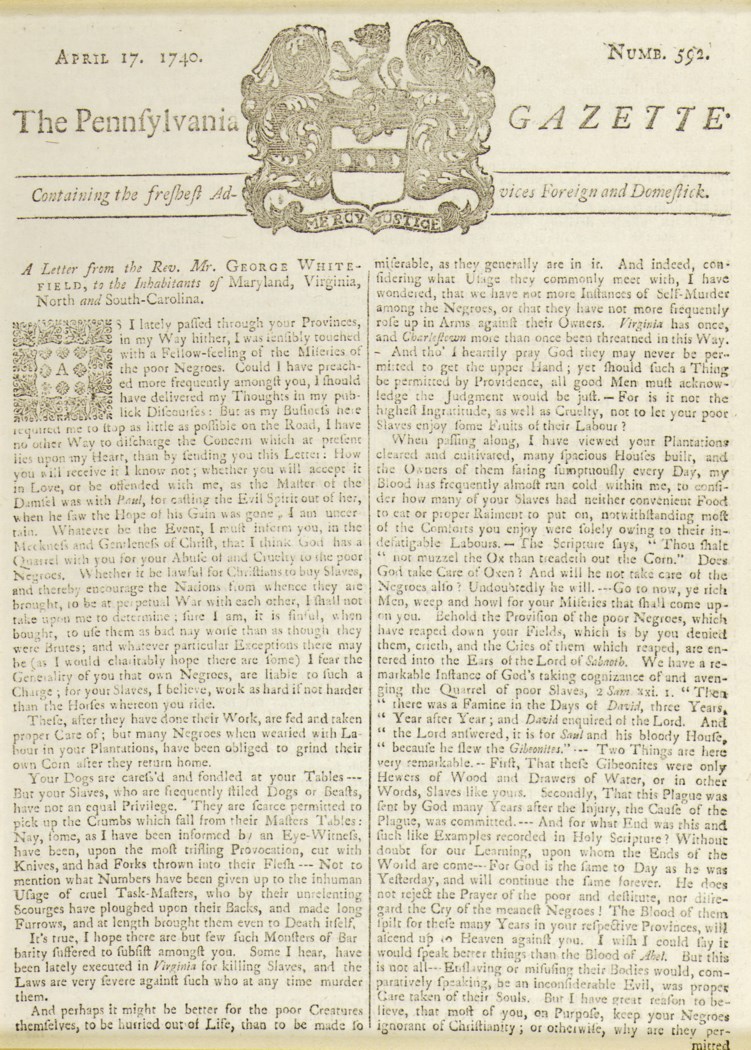 APRIL 17. 1740.
NUMB. 592.
The Pennſylvania GAZETTE.
Containing the freſheſt Ad-
vices Foreign and Domeſtick.
MERCY JUSTICE
A Letter from the Rev. Mr. GEORGE WHITE-
FIELD, to the Inhabitants of Maryland, Virginia,
North and South-Carolina.
AS I lately paſſed through your Provinces,
in my Way hither, I was ſenſibly touched
with a Fellow-feeling of the Miſeries of
the poor Negroes. Could I have preach-
ed more frequently amongſt you, I ſhould
have delivered my Thoughts in my pub-
lick Diſcourſes: But as my Buſineſs here
required me to ſtop as little as poſſible on the Road, I have
no other Way to diſcharge the Concern which at preſent
lies upon my Heart, than by ſending you this Letter: How
you will receive it I know not; whether you will accept it
in Love, or be offended with me, as the Maſter of the
Damſel was with Paul, for caſting the Evil Spirit out of her,
when he ſaw the Hope of his Gain was gone, I am uncer-
tain. Whatever be the Event, I muſt inform you, in the
Meekneſs and Gentleneſs of Chriſt, that I think God has a
Quarrel with you for your Abuſe of and Cruelty to the poor
Negroes. Whether it be lawful for Chriſtians to buy Slaves,
and thereby encourage the Nations from whence they are
brought, to be at perpetual War with each other, I ſhall not
take upon me to determine; ſure I am, it is ſinful, when
bought, to uſe them as bad nay worſe than as though they
were Brutes; and whatever particular Exceptions there may
be (as I would charitably hope there are ſome) I fear the
Generality of you that own Negroes, are liable to ſuch a
Charge; for your Slaves, I believe, work as hard if not harder
than the Horſes whereon you ride.
Theſe, after they have done their Work, are fed and taken
proper Care of; but many Negroes when wearied with La-
bour in your Plantations, have been obliged to grind their
own Corn after they return home.
Your Dogs are careſs'd and fondled at your Tables---
But your Slaves, who are frequently ſtiled Dogs or Beaſts,
have not an equal Privilege. They are ſcarce permitted to
pick up the Crumbs which fall from their Maſters Tables:
Nay, ſome, as I have been informed by an Eye-Witneſs,
have been, upon the moſt trifling Provocation, cut with
Knives, and had Forks thrown into their Fleſh --- Not to
mention what Numbers have been given up to the inhuman
Uſage of cruel Task-Maſters, who by their unrelenting
Scourges have ploughed upon their Backs, and made long
Furrows, and at length brought them even to Death itſelf.
It's true, I hope there are but few ſuch Monſters of Bar
barity ſuffered to ſubſiſt amongſt you. Some I hear, have
been lately executed in Virginia for killing Slaves, and the
Laws are very ſevere againſt ſuch who at any time murder
them.
And perhaps it might be better for the poor Creatures
themſelves, to be hurried out of Life, than to be made ſo
miſerable, as they generally are in it. And indeed, con-
ſidering what Uſage they commonly meet with, I have
wondered, that we have not more Inſtances of Self-Murder
among the Negroes, or that they have not more frequently
roſe up in Arms againſt their Owners. Virginia has once,
and Charleſtown more than once been threatned in this Way.
- And tho' I heartily pray God they may never be per-
mitted to get the upper Hand; yet ſhould ſuch a Thing
be permitted by Providence, all good Men muſt acknow-
ledge the Judgment would be juſt. — For is it not the
higheſt Ingratitude, as well as Cruelty, not to let your poor
Slaves enjoy ſome Fruits of their Labour?
When paſſing along, I have viewed your Plantations
cleared and cultivated, many ſpacious Houſes built, and
the Owners of them faring ſumptuouſly every Day, my
Blood has frequently almoſt run cold within me, to conſi-
der how many of your Slaves had neither convenient Food
to eat or proper Raiment to put on, notwithſtanding moſt
of the Comforts you enjoy were ſolely owing to their in-
defatigable Labours. — The Scripture ſays, " Thou ſhalt
" not muzzel the Ox that treadeth out the Corn." Does
God take Care of Oxen? And will he not take care of the
Negroes alſo? Undoubtedly he will. --- Go to now, ye rich
Men, weep and howl for your Miſeries that ſhall come up-
on you. Behold the Proviſion of the poor Negroes, which
have reaped down your Fields, which is by you denied
them, crieth, and the Cries of them which reaped, are en-
tered into the Ears of the Lord of Sabaoth. We have a re-
markable Inſtance of God's taking cognizance of and aven-
ging the Quarrel of poor Slaves, 2 Sam. xxi. 1. " Then
" there was a Famine in the Days of David, three Years,
" Year after Year; and David enquired of the Lord. And
" the Lord anſwered, it is for Saul and his bloody Houſe,
" becauſe he ſlew the Gibeonites." --- Two Things are here
very remarkable. — Firſt, That theſe Gibeonites were only
Hewers of Wood and Drawers of Water, or in other
Words, Slaves like yours. Secondly, That this Plague was
ſent by God many Years after the Injury, the Cauſe of the
Plague, was committed. --- And for what End was this and
ſuch like Examples recorded in Holy Scripture? Without
doubt for our Learning, upon whom the Ends of the
World are come --- For God is the ſame to Day as he was
Yeſterday, and will continue the ſame forever. He does
not reject the Prayer of the poor and deſtitute, nor diſre-
gard the Cry of the meaneſt Negroes! The Blood of them
ſpilt for theſe many Years in your reſpective Provinces, will
aſcend up to Heaven againſt you. I wiſh I could ſay it
would ſpeak better things than the Blood of Abel. But this
is not all --- Enſlaving or miſuſing their Bodies would, com-
paratively ſpeaking, be an inconſiderable Evil, was proper
Care taken of their Souls. But I have great reaſon to be-
lieve, that moſt of you, on Purpoſe, keep your Negroes
ignorant of Chriſtianity; or otherwiſe, why are they per-
mitted